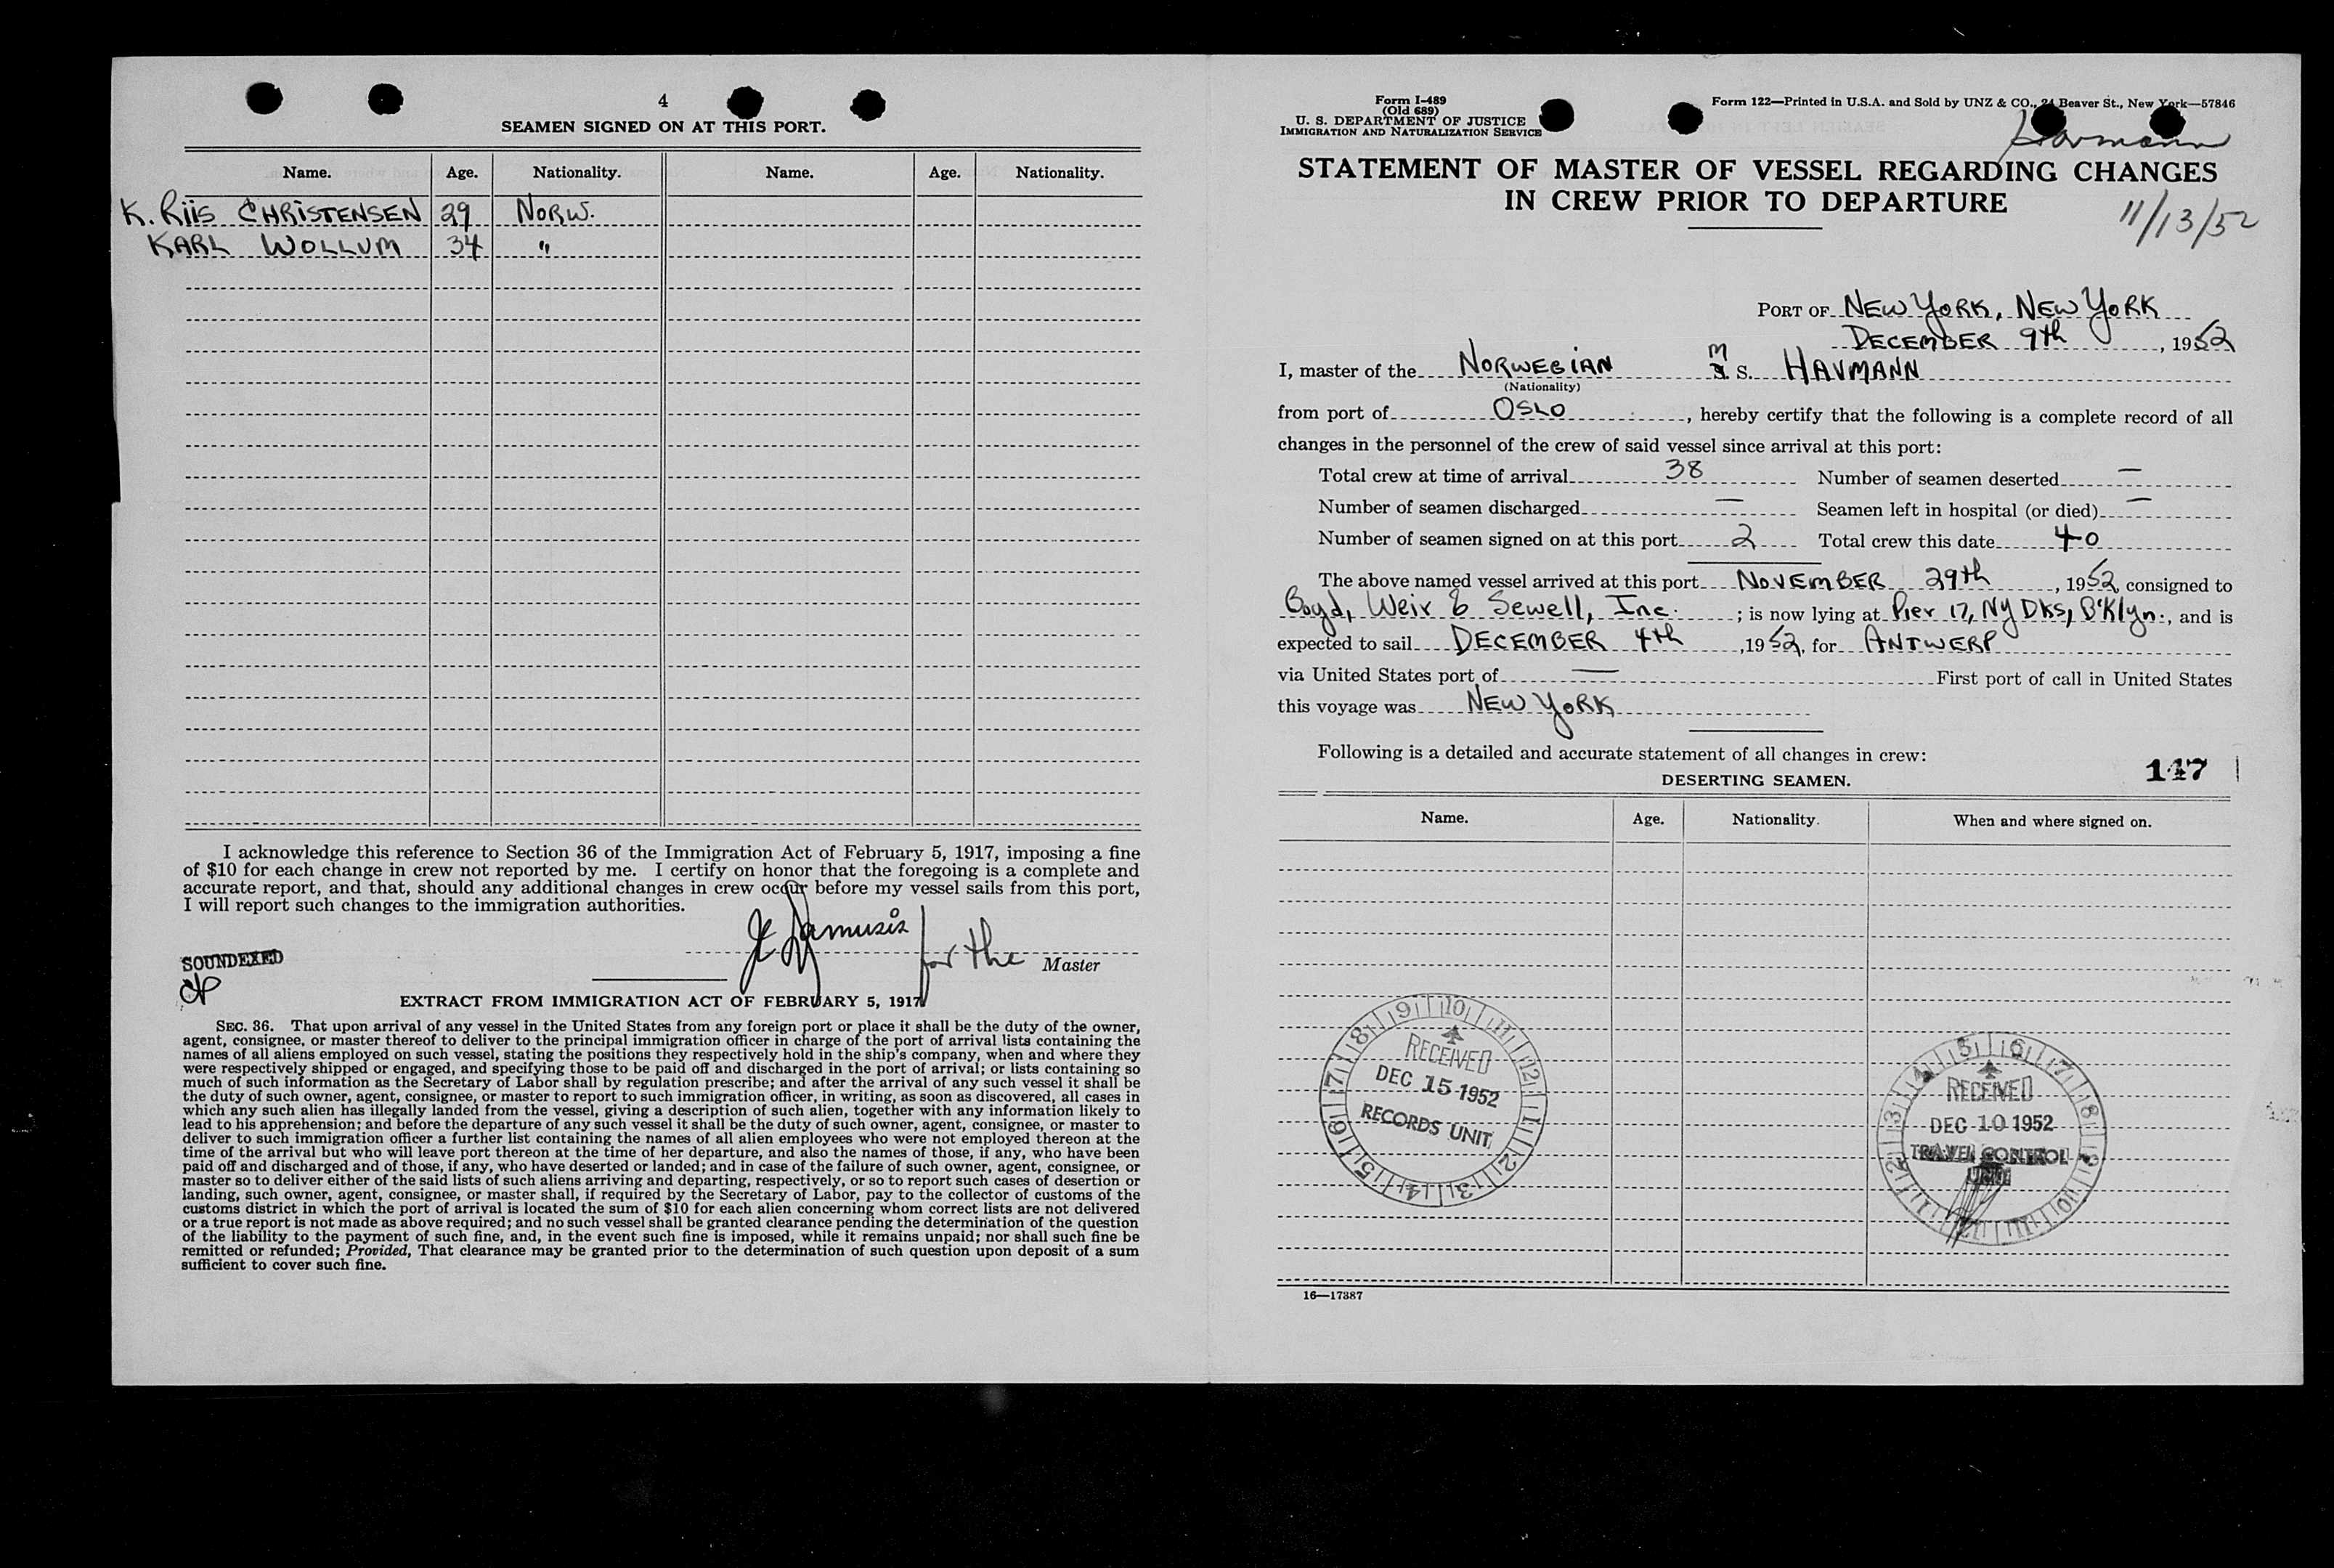 4
SEAMEN SIGNED ON AT THIS PORT.
Name. Age. Nationality. Name. Age. Nationality.
K. Riis CHRISTENSEN 29 NORW.
KARL WOLLUM 34 "
I acknowledge this reference to Section 36 of the Immigration Act of February 5, 1917, imposing a fine
of $10 for each change in crew not reported by me. I certify on honor that the foregoing is a complete and
accurate report, and that, should any additional changes in crew occur before my vessel sails from this port,
I will report such changes to the immigration authorities.
for the Master
SOUNDEXED
EXTRACT FROM IMMIGRATION ACT OF FEBRUARY 5, 1917
SEC. 36. That upon arrival of any vessel in the United States from any foreign port or place it shall be the duty of the owner,
agent, consignee, or master thereof to deliver to the principal immigration officer in charge of the port of arrival lists containing the
names of all aliens employed on such vessel, stating the positions they respectively hold in the ship's company, when and where they
were respectively shipped or engaged, and specifying those to be paid off and discharged in the port of arrival; or lists containing so
much of such information as the Secretary of Labor shall by regulation prescribe; and after the arrival of any such vessel it shall be
the duty of such owner, agent, consignee, or master to report to such immigration officer, in writing, as soon as discovered, all cases in
which any such alien has illegally landed from the vessel, giving a description of such alien, together with any information likely to
lead to his apprehension; and before the departure of any such vessel it shall be the duty of such owner, agent, consignee, or master to
deliver to such immigration officer a further list containing the names of all alien employees who were not employed thereon at the
time of the arrival but who will leave port thereon at the time of her departure, and also the names of those, if any, who have been
paid off and discharged and of those, if any, who have deserted or landed; and in case of the failure of such owner, agent, consignee, or
master so to deliver either of the said lists of such aliens arriving and departing, respectively, or so to report such cases of desertion or
landing, such owner, agent, consignee, or master shall, if required by the Secretary of Labor, pay to the collector of customs of the
customs district in which the port of arrival is located the sum of $10 for each alien concerning whom correct lists are not delivered
or a true report is not made as above required; and no such vessel shall be granted clearance pending the determination of the question
of the liability to the payment of such fine, and, in the event such fine is imposed, while it remains unpaid; nor shall such fine be
remitted or refunded; Provided, That clearance may be granted prior to the determination of such question upon deposit of a sum
sufficient to cover such fine.
Form I-489
(Old 689)
U. S. DEPARTMENT OF JUSTICE
IMMIGRATION AND NATURALIZATION SERVICE
Form 122—Printed in U.S.A. and Sold by UNZ & CO., 24 Beaver St., New York—57846
Havmann
STATEMENT OF MASTER OF VESSEL REGARDING CHANGES
IN CREW PRIOR TO DEPARTURE
11/13/52
PORT OF NEW YORK, NEW YORK
DECEMBER 9th, 1952
I, master of the NORWEGIAN M S. HAVMANN
(Nationality)
from port of OSLO, hereby certify that the following is a complete record of all
changes in the personnel of the crew of said vessel since arrival at this port:
Total crew at time of arrival 38 Number of seamen deserted —
Number of seamen discharged — Seamen left in hospital (or died) —
Number of seamen signed on at this port 2 Total crew this date 40
The above named vessel arrived at this port NOVEMBER 29th, 1952, consigned to
Boyd, Weir & Sewell, Inc.; is now lying at Pier 17, NY DKS, B'Klyn., and is
expected to sail DECEMBER 4th, 1952, for ANTWERP
via United States port of — First port of call in United States
this voyage was NEW YORK
Following is a detailed and accurate statement of all changes in crew:
DESERTING SEAMEN.
147
Name. Age. Nationality. When and where signed on.
RECEIVED
DEC 15 1952
RECORDS UNIT
RECEIVED
DEC 10 1952
TRAVEL CONTROL
UNIT
16—17387